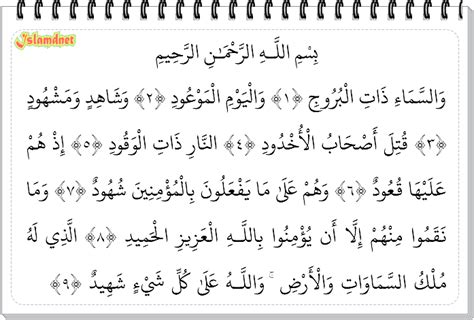 Islamdnet
بِسْمِ اللَّـهِ الرَّحْمَـٰنِ الرَّحِيمِ
وَالسَّمَاءِ ذَاتِ الْبُرُوجِ ﴿١﴾ وَالْيَوْمِ الْمَوْعُودِ ﴿٢﴾ وَشَاهِدٍ وَمَشْهُودٍ
﴿٣﴾ قُتِلَ أَصْحَابُ الْأُخْدُودِ ﴿٤﴾ النَّارِ ذَاتِ الْوَقُودِ ﴿٥﴾ إِذْ هُمْ
عَلَيْهَا قُعُودٌ ﴿٦﴾ وَهُمْ عَلَىٰ مَا يَفْعَلُونَ بِالْمُؤْمِنِينَ شُهُودٌ ﴿٧﴾ وَمَا
نَقَمُوا مِنْهُمْ إِلَّا أَن يُؤْمِنُوا بِاللَّـهِ الْعَزِيزِ الْحَمِيدِ ﴿٨﴾ الَّذِي لَهُ
مُلْكُ السَّمَاوَاتِ وَالْأَرْضِ ۚ وَاللَّـهُ عَلَىٰ كُلِّ شَيْءٍ شَهِيدٌ ﴿٩﴾